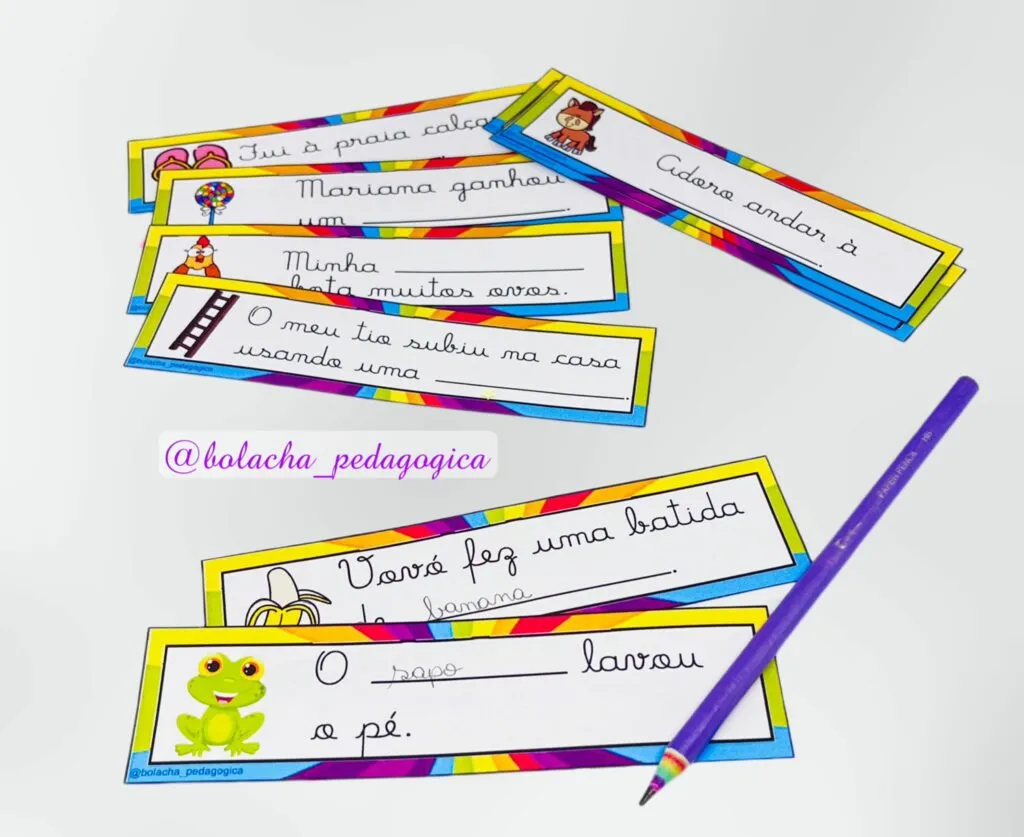 Fui à praia calça
Mariana ganhou
um
Minha
bota muitos ovos.
O meu tio subiu na casa
usando uma
@bolacha_pedagogica
Adoro andar à
@bolacha_pedagogica
Vovó fez uma batida
banana
O sapo lavou
o pé.
@bolacha_pedagogica